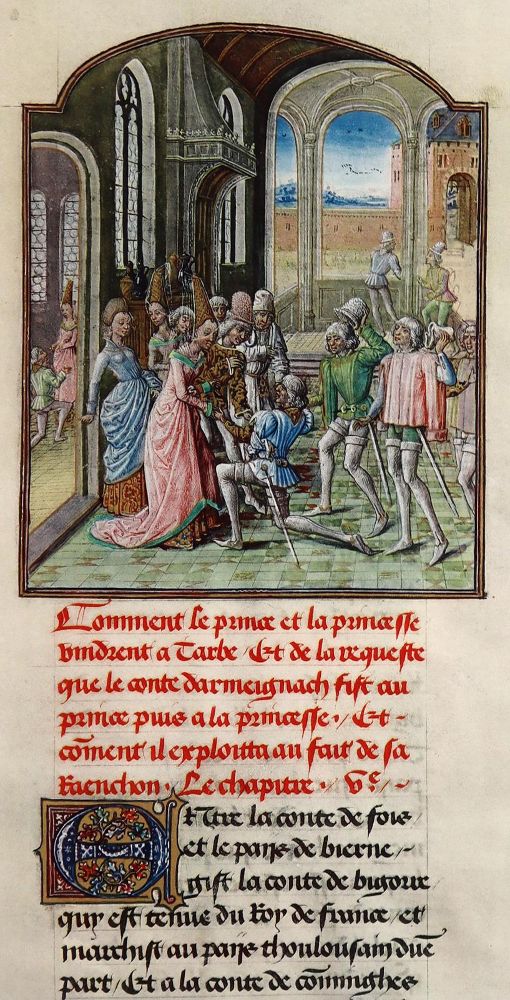 Comment le prince et la princesse
vindrent a Tarbe / Et de la requeste
que le conte darmeignach fist au
prince puis a la princesse ./ Et -
cōment il exploitta au fait de sa
Raenchon . Le chapitre . Vᵉ ./ -
ENtre la conte de fois /
et le pays de bierne / -
gist la conte de bigorre
quy est tenue du Roy de france / et
marchist au pays thoulousain dune
part / Et a la conte de cōminghes